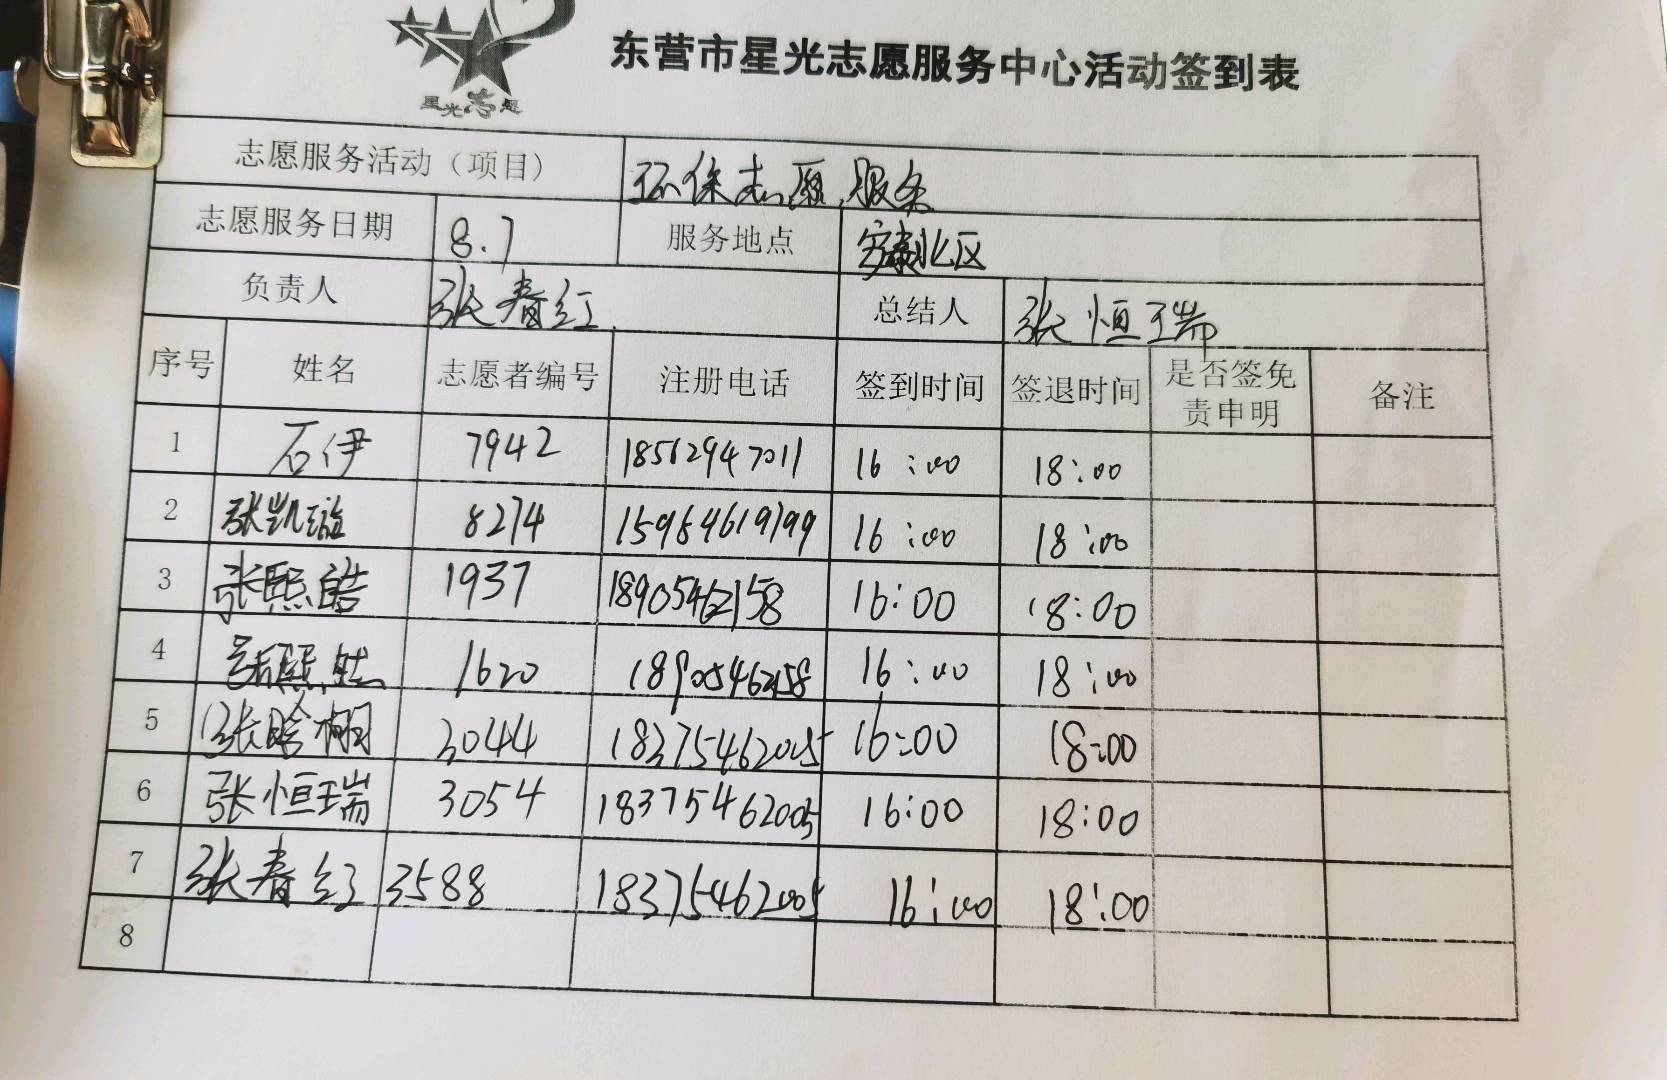 星光志愿
东营市星光志愿服务中心活动签到表
志愿服务活动（项目） 环保志愿服务
志愿服务日期 8.7 服务地点 安泰北区
负责人 张春红 总结人 张恒瑞
序号 姓名 志愿者编号 注册电话 签到时间 签退时间 是否签免责申明 备注
1 石伊 7942 18562947011 16:00 18:00
2 张凯 8274 16:00 18:00
3 张熙皓 1937 18905462158 16:00 18:00
4 1620 18905462158 16:00 18:00
5 张 3044 18375462005 16:00 18:00
6 张恒瑞 3054 18375462005 16:00 18:00
7 张春红 3588 18375462005 16:00 18:00
8